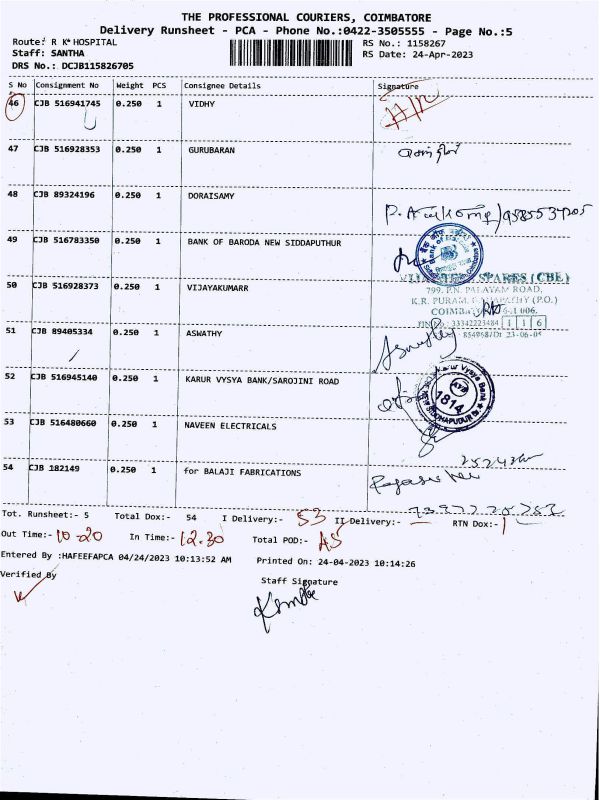 THE PROFESSIONAL COURIERS, COIMBATORE
Delivery Runsheet - PCA - Phone No.:0422-3505555 - Page No.:5
Route: R K HOSPITAL RS No.: 1158267
Staff: SANTHA RS Date: 24-Apr-2023
DRS No.: DCJB115826705
S No Consignment No Weight PCS Consignee Details Signature
46 CJB 516941745 0.250 1 VIDHY
47 CJB 516928353 0.250 1 GURUBARAN
48 CJB 89324196 0.250 1 DORAISAMY
49 CJB 516783350 0.250 1 BANK OF BARODA NEW SIDDAPUTHUR
SPARES (CBE)
50 CJB 516928373 0.250 1 VIJAYAKUMARR
799, P.N. PALAYAM ROAD,
K.R. PURAM, (P.O.)
33342223484 1 1 6
51 CJB 89405334 0.250 1 ASWATHY
52 CJB 516945140 0.250 1 KARUR VYSYA BANK/SAROJINI ROAD
Karur Vysya Bank
1814
53 CJB 516480660 0.250 1 NAVEEN ELECTRICALS
54 CJB 182149 0.250 1 for BALAJI FABRICATIONS
Tot. Runsheet:- 5 Total Dox:- 54 I Delivery:- 53 II Delivery:- — RTN Dox:- 1
Out Time:- 10-20 In Time:- 12.30 Total POD:-
Entered By :HAFEEFAPCA 04/24/2023 10:13:52 AM Printed On: 24-04-2023 10:14:26
Verified By Staff Signature